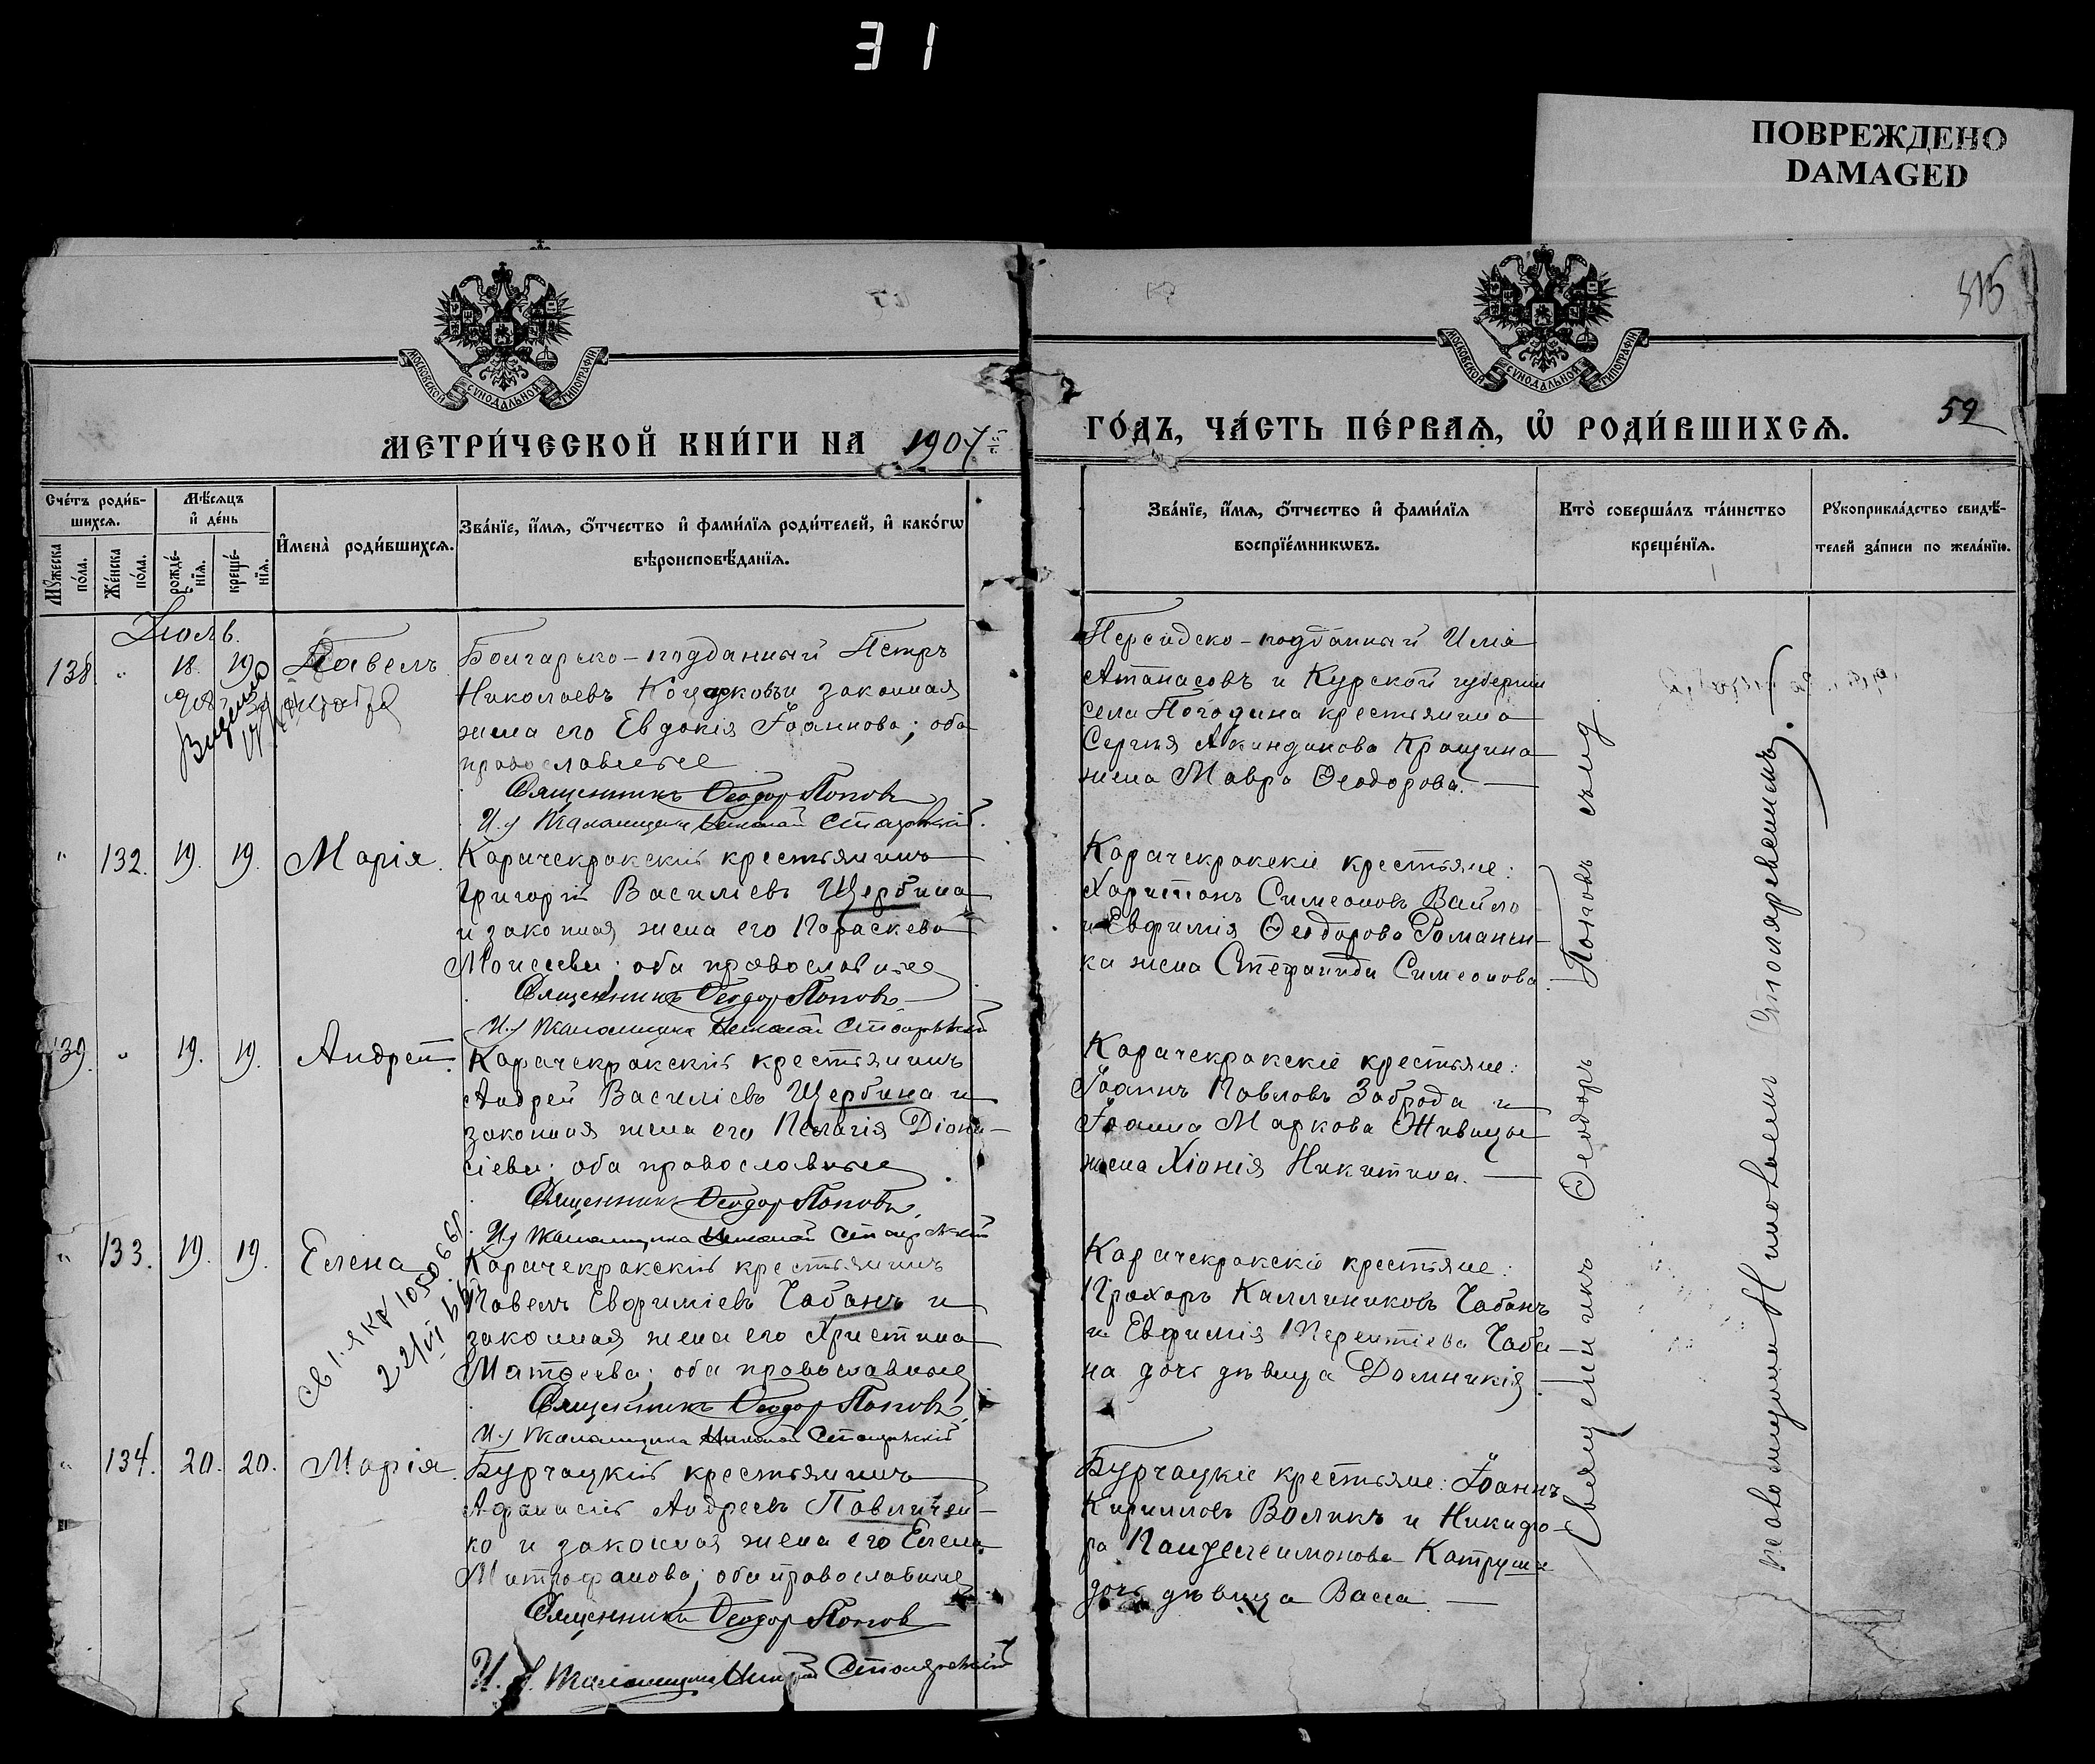 31
ПОВРЕЖДЕНО
DAMAGED
515
59
МОСКОВСКОЙ СѴНОДАЛЬНОЙ ТИПОГРАФІИ
МОСКОВСКОЙ СѴНОДАЛЬНОЙ ТИПОГРАФІИ
МЕТРИ́ЧЕСКОЙ КНИ́ГИ НА 1907 й г.
ГО́ДЪ, ЧА́СТЬ ПЕ́РВАѦ, Ѡ҆ РОДИ́ВШИХСѦ.
Сче́тъ роди́вшихсѧ.
Мꙋ́жеска по́ла.
Же́нска по́ла.
Мѣ́сѧцъ и҆ де́нь
рожде́нїѧ.
креще́нїѧ.
И҆мена̀ роди́вшихсѧ.
Зва́нїе, и҆́мѧ, ѻ҆́тчество и҆ фами́лїѧ роди́телей, и҆ како́гѡ
вѣроисповѣ́данїѧ.
Зва́нїе, и҆́мѧ, ѻ҆́тчество и҆ фами́лїѧ
воспрїе́мникѡвъ.
Кто̀ соверша́лъ та́инство
креще́нїѧ.
Рꙋкоприкла́дство свидѣ́-
телей за́писи по жела́нїю.
Іюль.
138. " 18. 19. Павелъ
Болгарско-подданный Петръ
Николаевъ и законная
жена его Евдокія Іоаннова; оба
православные
Священникъ Ѳеодор Попов
И. д. псаломщика Николай Столяревский
Персидско-подданный Илія
Атанасовъ и Курской губерніи
села Погодина крестьянина
Сергѣя Акиндинова
жена Мавра Ѳеодорова. —
" 132. 19. 19. Марія.
Карачекракскій крестьянинъ
Григорій Василіевъ Щербина
и законная жена его Параскева
Моисеева; оба православные
Священникъ Ѳеодор Попов
И. д. псаломщика Николай Столяревский
Карачекракскіе крестьяне:
Харитонъ Симеоновъ Вайло
и Евфимія Ѳеодорова Романен-
ка жена Стефанида Симеонова.
139. " 19. 19. Андрей.
Карачекракскій крестьянинъ
Андрей Василіевъ Щербина и
законная жена его Пелагія Діони-
сіева; оба православные
Священникъ Ѳеодор Попов
И. д. псаломщика Николай Столяревский
Карачекракскіе крестьяне:
Іоаннъ Павловъ Заброда и
Іоанна Маркова Живицы
жена Хіонія Никитина. —
" 133. 19. 19. Елена
св. 1-я КР 1050661
22/VI
Карачекракскій крестьянинъ
Павелъ Евфиміевъ Чабанъ и
законная жена его Христина
Матѳеева; оба православные
Священникъ Ѳеодор Попов
И. д. псаломщика Николай Столяревский
Карачекракскіе крестьяне:
Прохоръ Каллиниковъ Чабанъ
и Евфимія Терентіева Чаба-
на дочь дѣвица Домникія.
" 134. 20. 20. Марія.
Бурчацкій крестьянинъ
Афанасій Андреевъ Павличен-
ко и законная жена его Елена
Митрофанова; оба православные
Священникъ Ѳеодор Попов
И. д. псаломщика Столяревский
Бурчацкіе крестьяне: Іоаннъ
Кирилловъ Воликъ и Никифо-
ра Пантелеимонова Катруши
дочь дѣвица Васса. —
Священникъ Ѳеодоръ Поповъ съ и. д.
псаломщика Николаемъ Столяревскимъ.